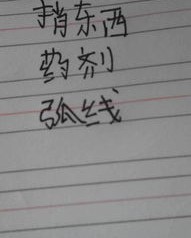 捎东西
药剂
弧线